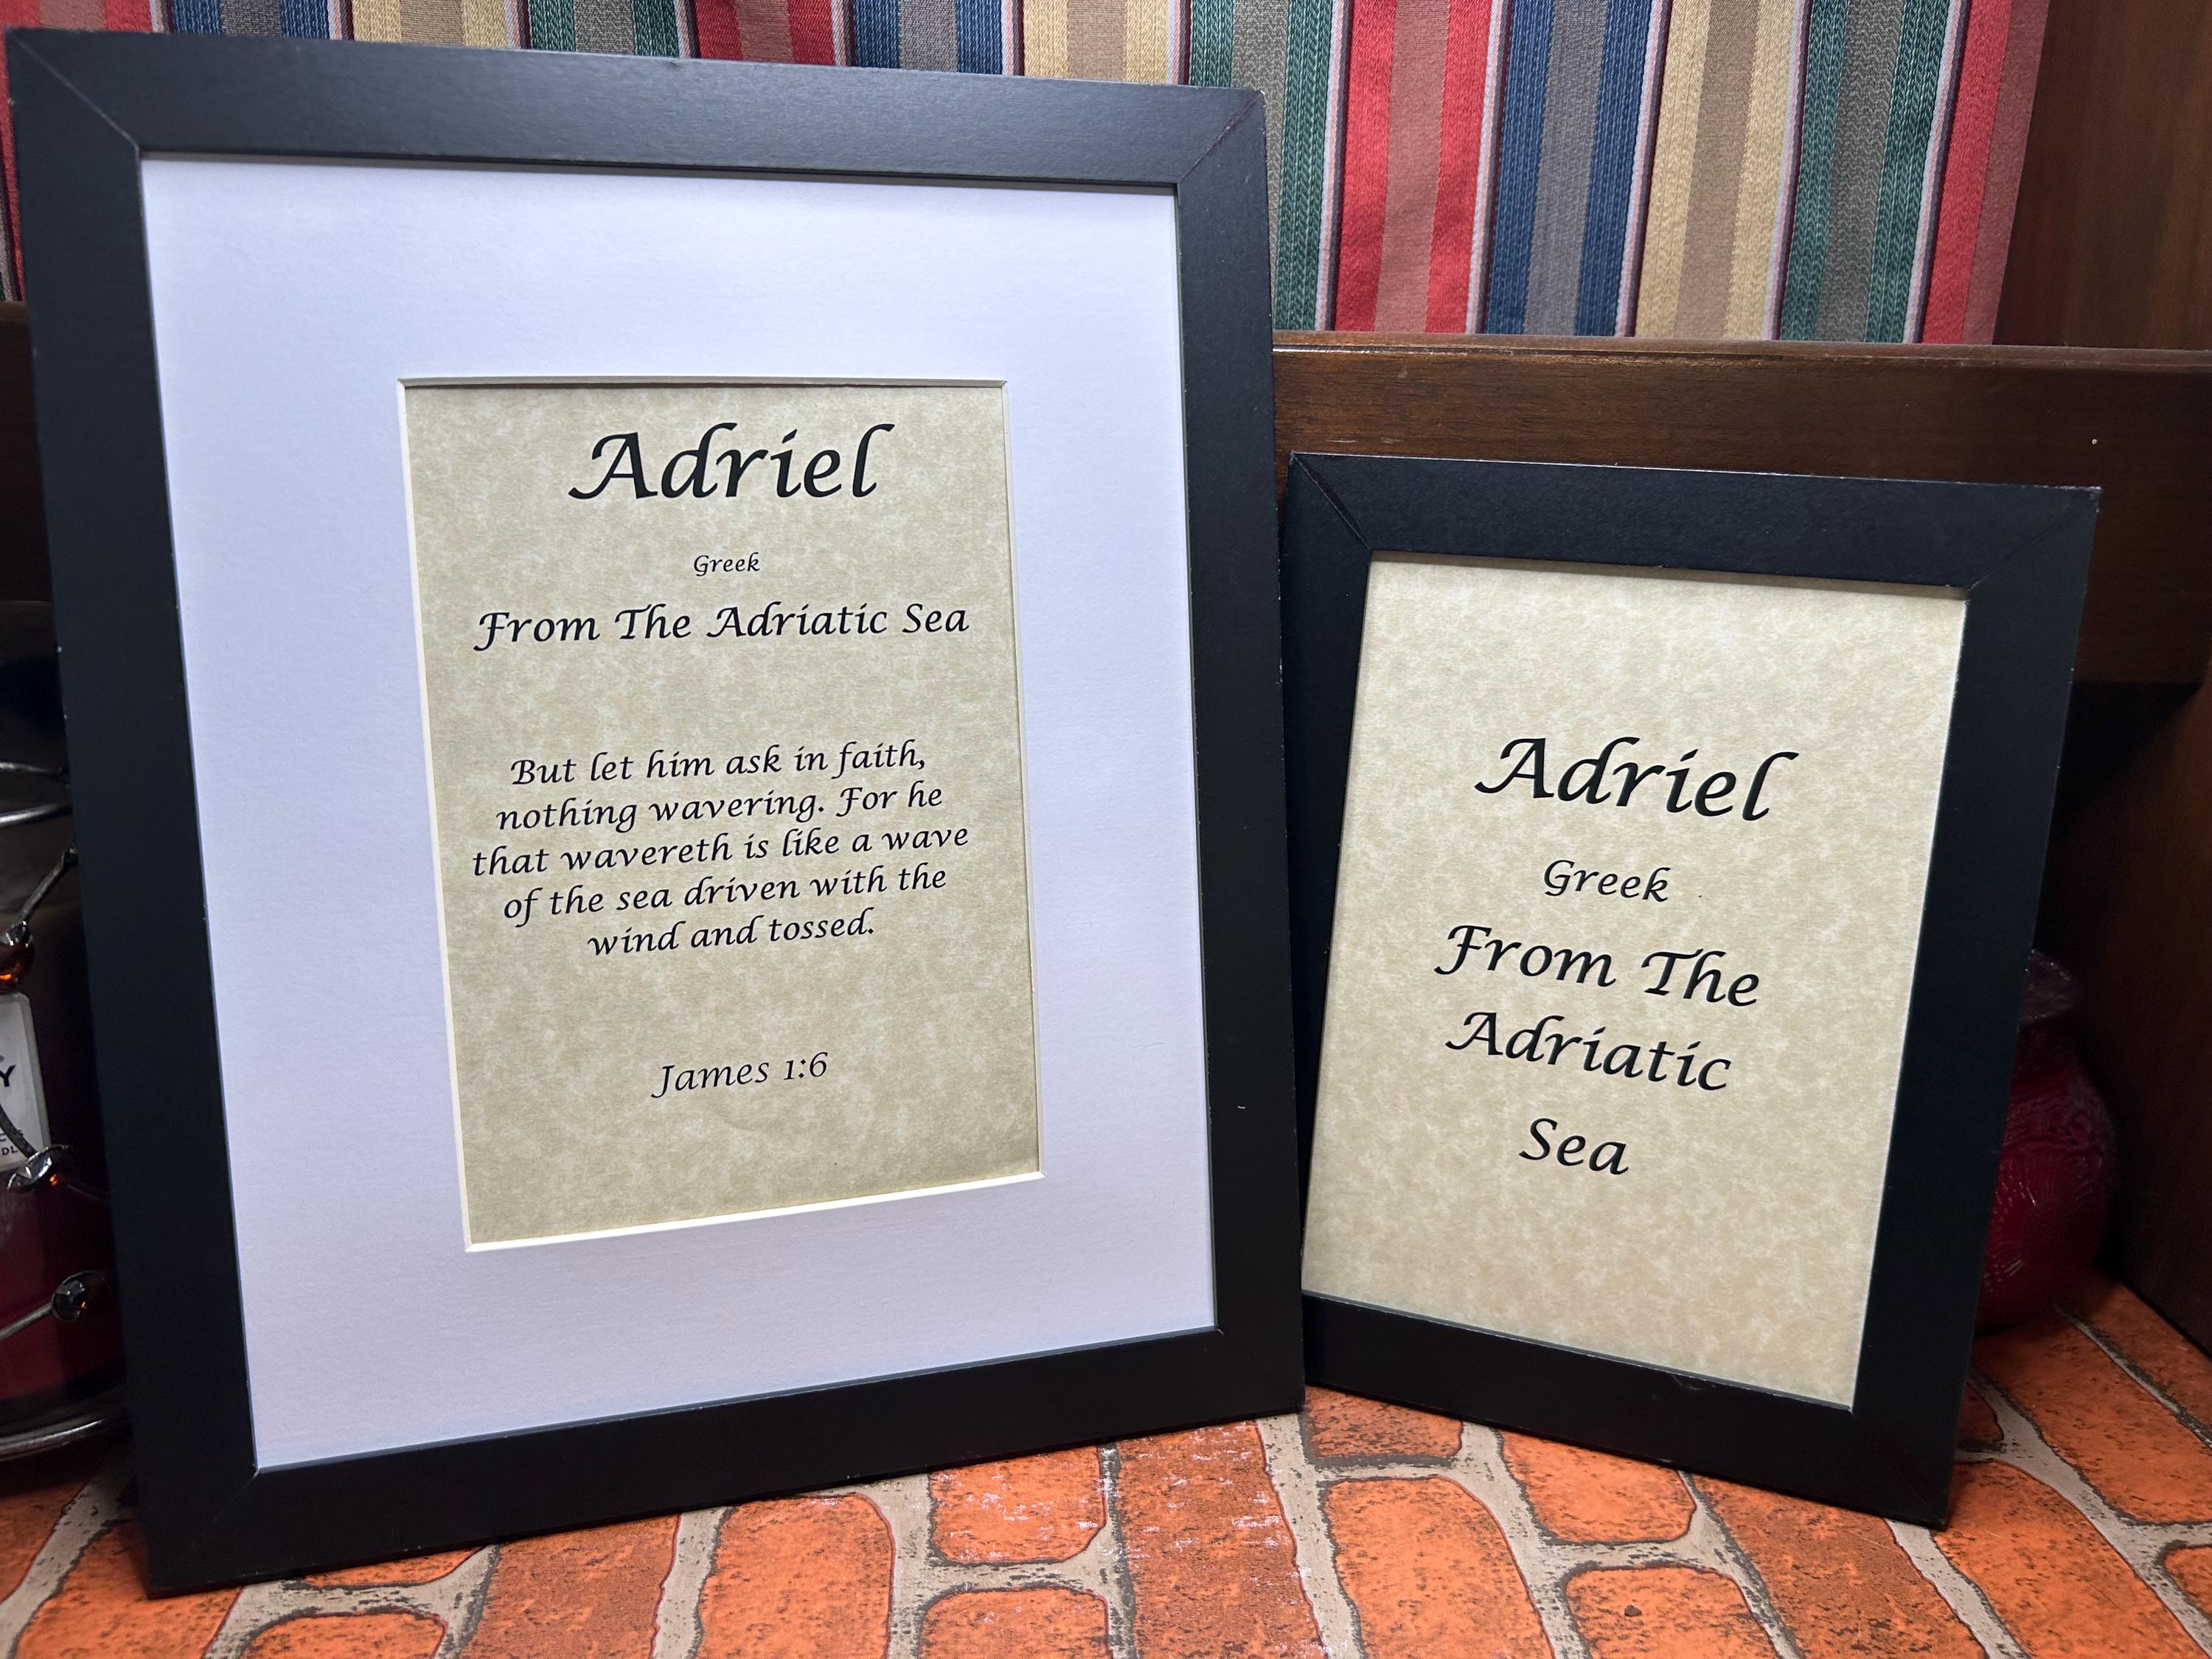 Adriel
Greek
From The Adriatic Sea
But let him ask in faith,
nothing wavering. For he
that wavereth is like a wave
of the sea driven with the
wind and tossed.
James 1:6
Adriel
Greek
From The
Adriatic
Sea